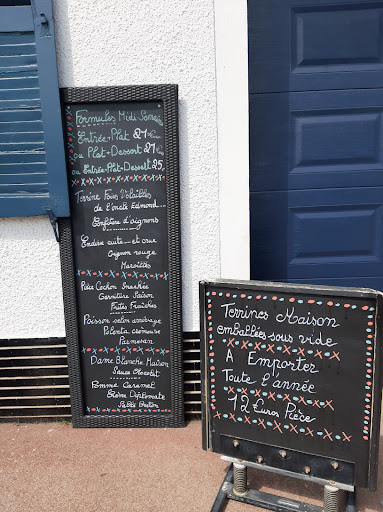 Formules Midi Semaine
Entrée+Plat 21
ou Plat+Dessert 21
ou Entrée+Plat+Dessert 25
Terrine Foies Volailles
de l'oncle Edmond
Confiture d'oignons
Endive cuite et crue
Oignon rouge
Maroilles
Cochon
Garniture Saison
Frites Fraîches
Poisson selon arrivage
Polenta crémeuse
Parmesan
Dame Blanche Maison
Sauce Chocolat
Pomme Caramel
Crème Diplomate
Sablé Breton
Terrines Maison
emballées sous vide
A Emporter
Toute l'année
12 Euros Pièce